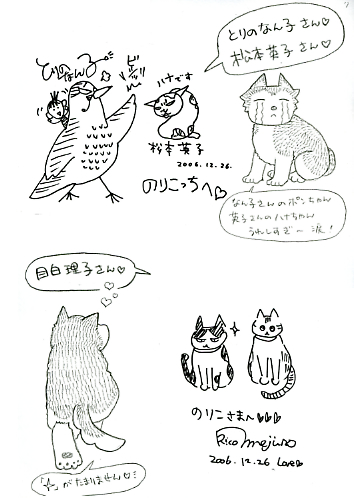 とりのなん子
ハナです
松本英子
2006.12.26.
のりこっちへ♡
とりのなん子さん♡
松本英子さん♡
なん子さんのポンちゃん
英子さんのハナちゃん
うれしすぎ〜涙!
目白理子さん♡
がたまりません♡
のりこさま〜♡♡♡
2006.12.26 Love♡